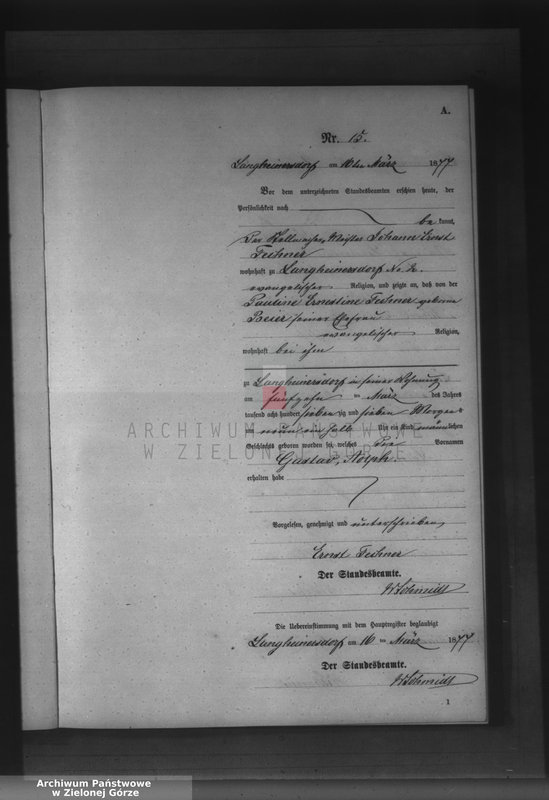 A.
Nr. 15.
Langheinersdorf am 16ten März 1877
Vor dem unterzeichneten Standesbeamten erschien heute, der
Persönlichkeit nach
be kannt,
Der Stellmacher Meister Johann Ernst
Fechner
wohnhaft zu Langheinersdorf No
evangelischer Religion, und zeigte an, daß von der
Pauline Ernestine Fechner geborne
Beier seiner Ehefrau
evangelischer Religion,
wohnhaft bei ihm
zu Langheinersdorf in seiner Wohnung
am fünfzehn ten März des Jahres
tausend acht hundert sieben zig und sieben Morgens
um neun ein halb Uhr ein Kind männlichen
Geschlechts geboren worden sei, welches die Vornamen
Gustav, Adolph
erhalten habe
Vorgelesen, genehmigt und unterschrieben
Ernst Fechner
Der Standesbeamte.
WSchmidt
Die Uebereinstimmung mit dem Hauptregister beglaubigt
Langheinersdorf am 16 ten März 1877
Der Standesbeamte.
WSchmidt
1
ARCHIWUM PAŃSTWOWE
W ZIELONEJ GÓRZE
Archiwum Państwowe
w Zielonej Górze